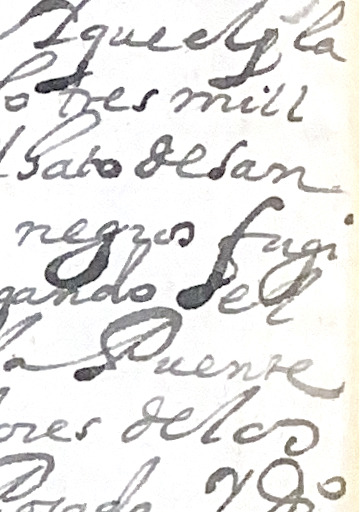 que el y la
o tres mill
hato de san
negros fugi
gando del
la Puente
ores de los